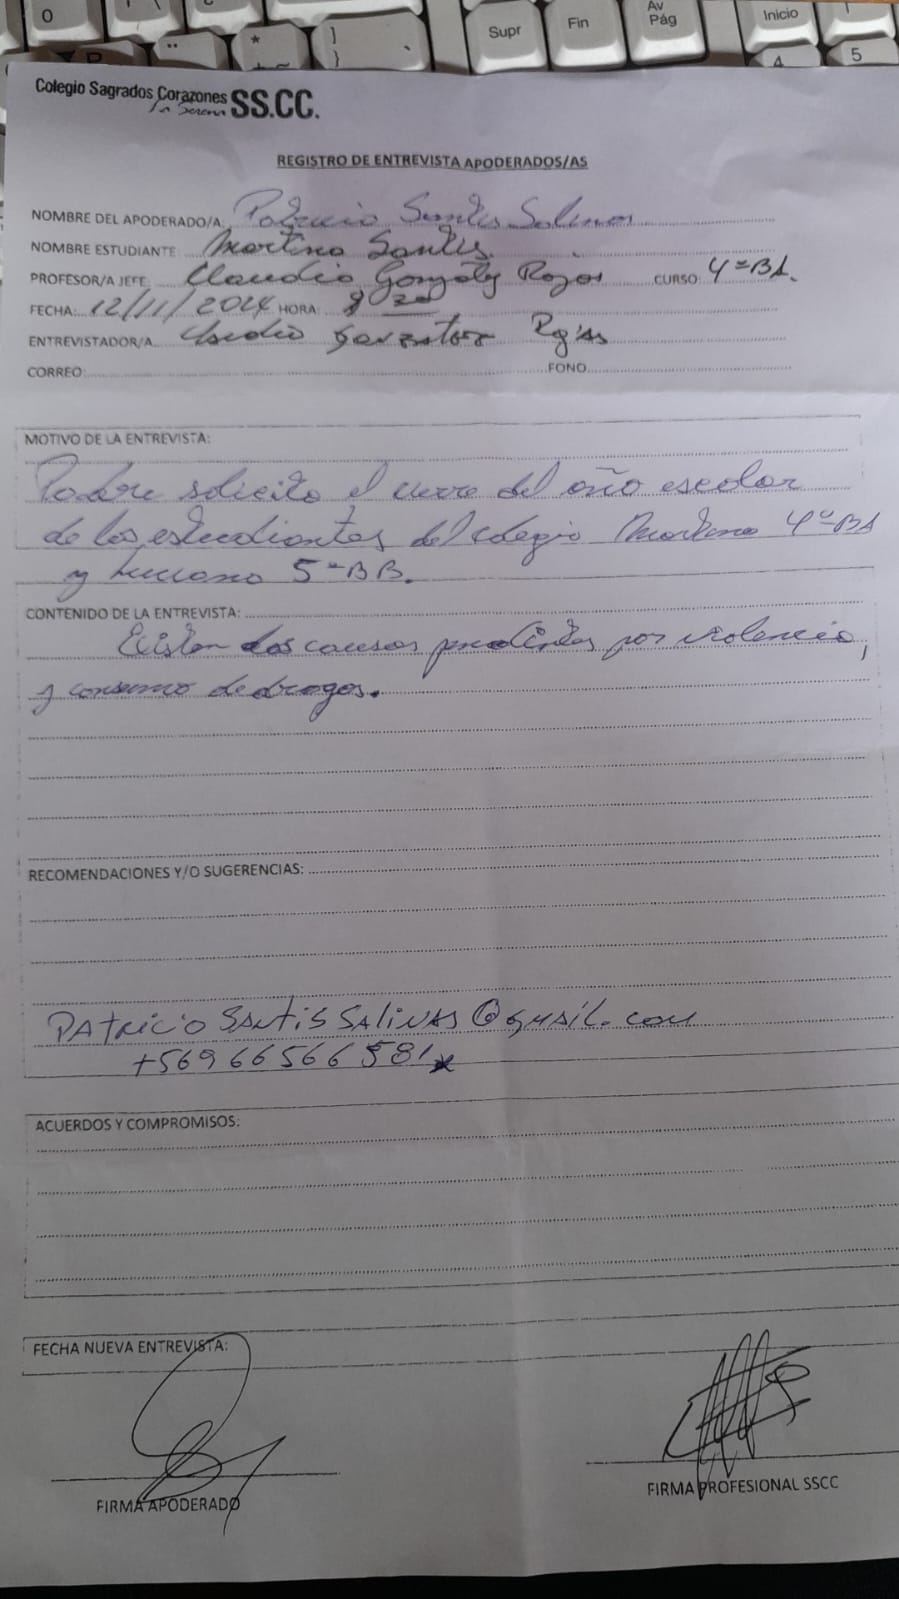 0
Supr
Fin
Av
Pág
Inicio
4
5
Colegio Sagrados Corazones SS.CC.
La Serena
REGISTRO DE ENTREVISTA APODERADOS/AS
NOMBRE DEL APODERADO/A: Patricio Santis Salinas
NOMBRE ESTUDIANTE: Martina Santis.
PROFESOR/A JEFE: Claudio González Rojas CURSO: 4ºBA.
FECHA: 12/11/2024 HORA: 8
ENTREVISTADOR/A: Claudio Rojas
CORREO: FONO
MOTIVO DE LA ENTREVISTA:
Padre solicita el cierre del año escolar
de los estudiantes del colegio Martina 4ºBA
y Luciano 5ºBB.
CONTENIDO DE LA ENTREVISTA:
Existen dos causas pendientes por violencia,
y consumo de drogas.
RECOMENDACIONES Y/O SUGERENCIAS:
PATRICIO SANTIS SALINAS @ GMAIL.COM
+569 66566581
ACUERDOS Y COMPROMISOS:
FECHA NUEVA ENTREVISTA:
FIRMA APODERADO
FIRMA PROFESIONAL SSCC